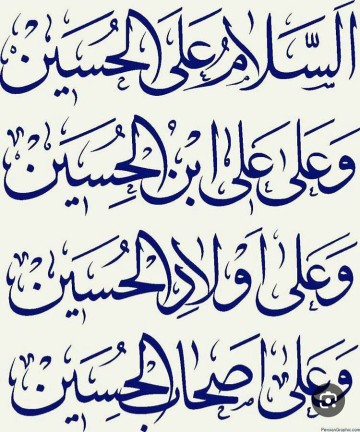 اَلسَّلامُ عَلَى الحُسَين
وَعَلى عَلى ابنُ الحُسِين
وَعَلى اَولادِ الحُسَين
وَعَلى اَصحابِ الحُسَين
PersianGraphic.com